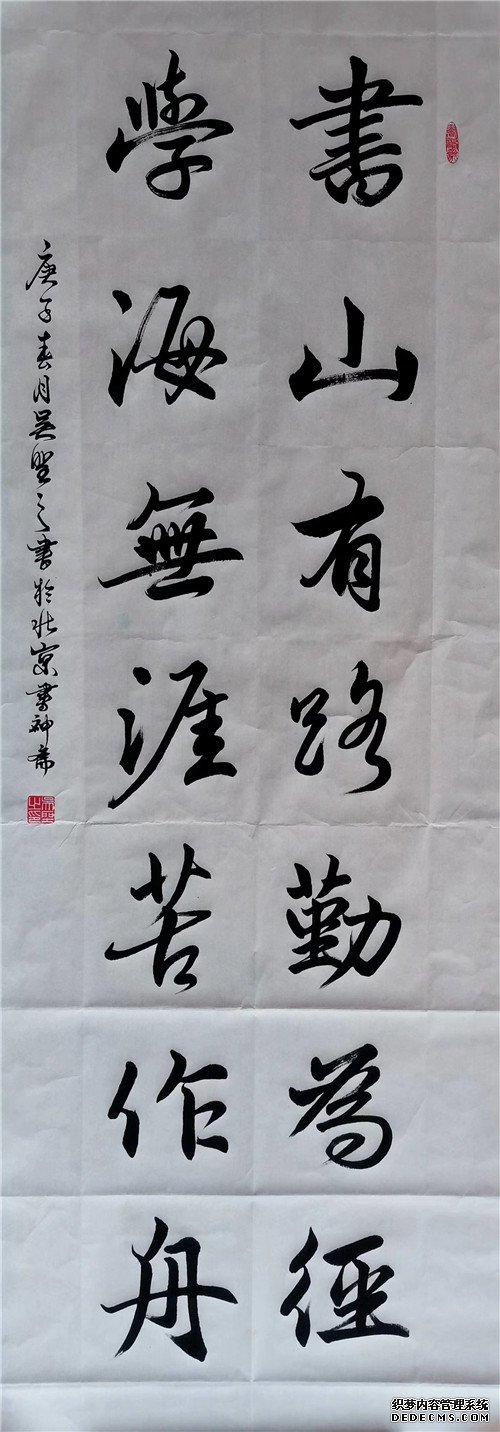 書山有路勤為徑
學海無涯苦作舟
庚子春月吴野之書於北京墨神齋
织梦内容管理系统
DEDECMS.COM